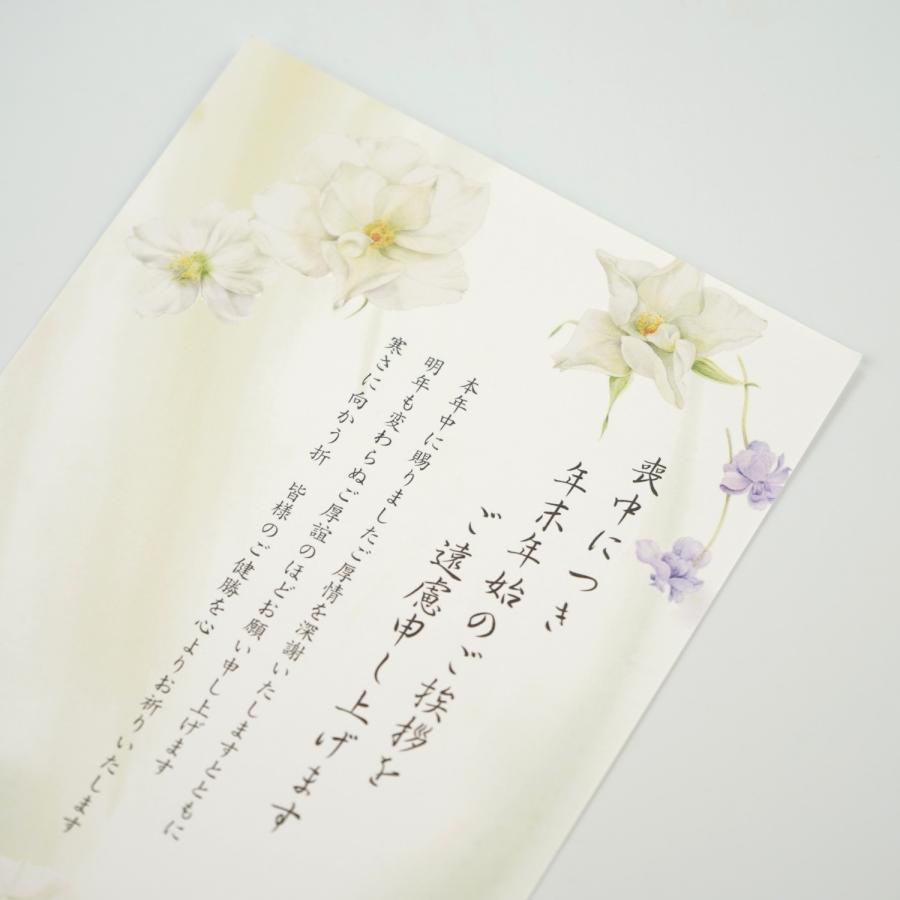 喪中につき
年末年始のご挨拶を
ご遠慮申し上げます
本年中に賜りましたご厚情を深謝いたしますとともに
明年も変わらぬご厚誼のほどお願い申し上げます
寒さに向かう折　皆様のご健勝を心よりお祈りいたします